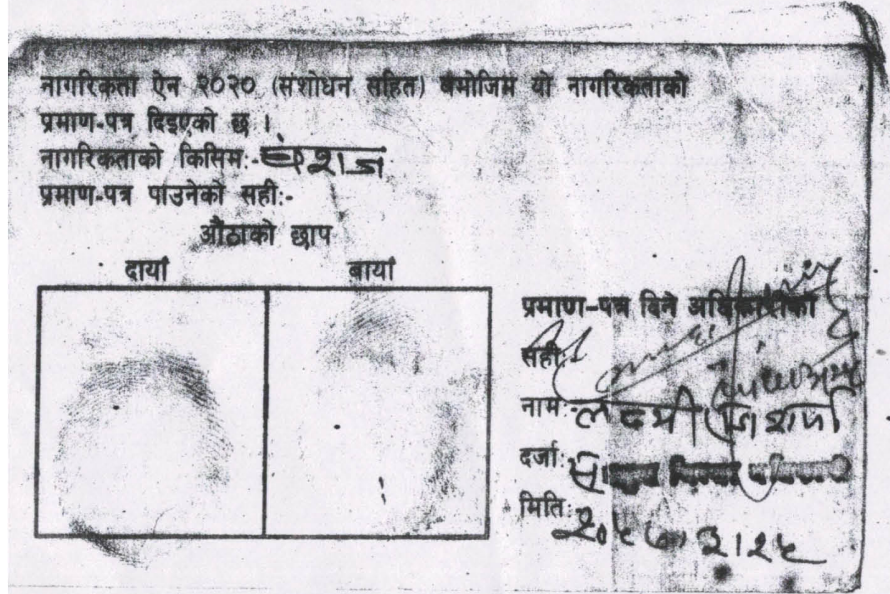 नागरिकता ऐन २०२० (संशोधन सहित) बमोजिम यो नागरिकताको
प्रमाण-पत्र दिइएको छ ।
नागरिकताको किसिम:- वंशज
प्रमाण-पत्र पाउनेको सही:-
औंठाको छाप
दायां बायां
प्रमाण-पत्र दिने अधिकारीको
सही:-
नाम:-
दर्जा:-
मिति:-